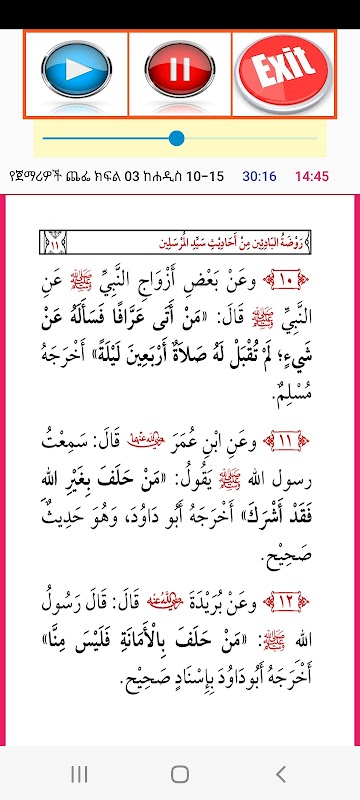 Exit
የጀማሪዎች ጨፌ ክፍል 03 ከሐዲስ 10-15 30:16 14:45
رَوْضَةُ البَادِئِين مِنْ أَحَادِيْثِ سَيِّدِ المُرْسَلِين ١١
١٠ وعَنْ بَعْضِ أَزْوَاجِ النَّبِيِّ ﷺ عَنِ
النَّبِيِّ ﷺ قَالَ: «مَنْ أَتَى عَرَّافًا فَسَأَلَهُ عَنْ
شَيءٍ؛ لَمْ تُقْبَلْ لَهُ صَلاَةٌ أَرْبَعِينَ لَيْلَةً» أَخْرَجَهُ
مُسْلِمٌ.
١١ وعَنِ ابْنِ عُمَرَ رضي الله عنهما قَالَ: سَمِعْتُ
رسول الله ﷺ يَقُولُ: «مَنْ حَلَفَ بِغَيْرِ الله
فَقَدْ أَشْرَكَ» أَخْرَجَهُ أَبُو دَاوُدَ، وَهُوَ حَدِيثٌ
صَحِيْح.
١٢ وعَنْ بُرَيْدَةَ رضي الله عنه قَالَ: قَالَ رَسُولُ
الله ﷺ: «مَنْ حَلَفَ بِالْأَمَانَةِ فَلَيْسَ مِنَّا»
أَخْرَجَهُ أَبُودَاوُدَ بِإِسْنَادٍ صَحِيْح.